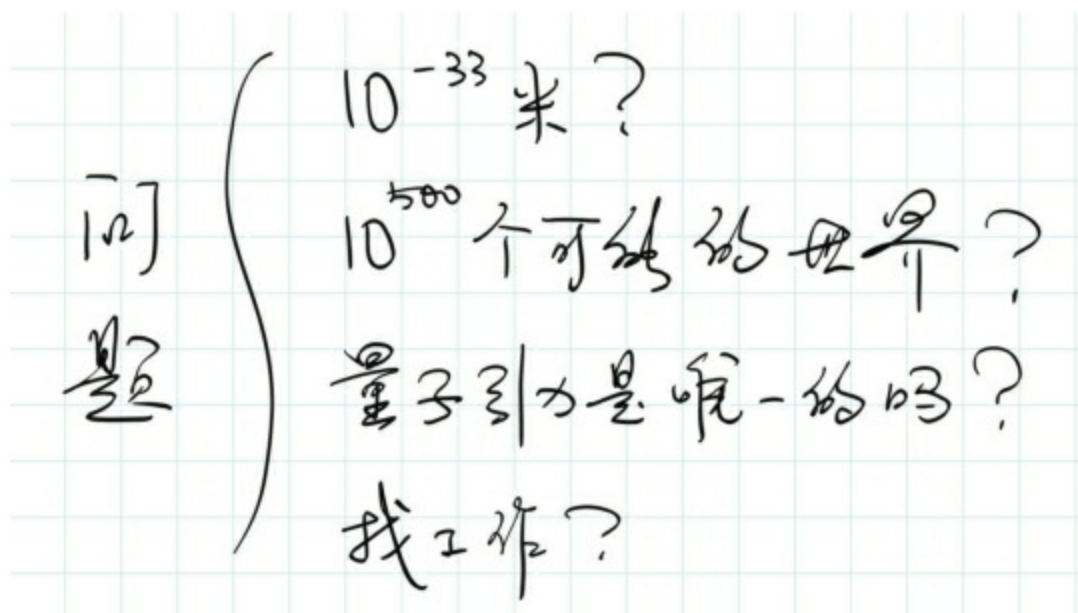 问题
10⁻³³米？
10⁵⁰⁰个可能的世界？
量子引力是唯一的吗？
找工作？